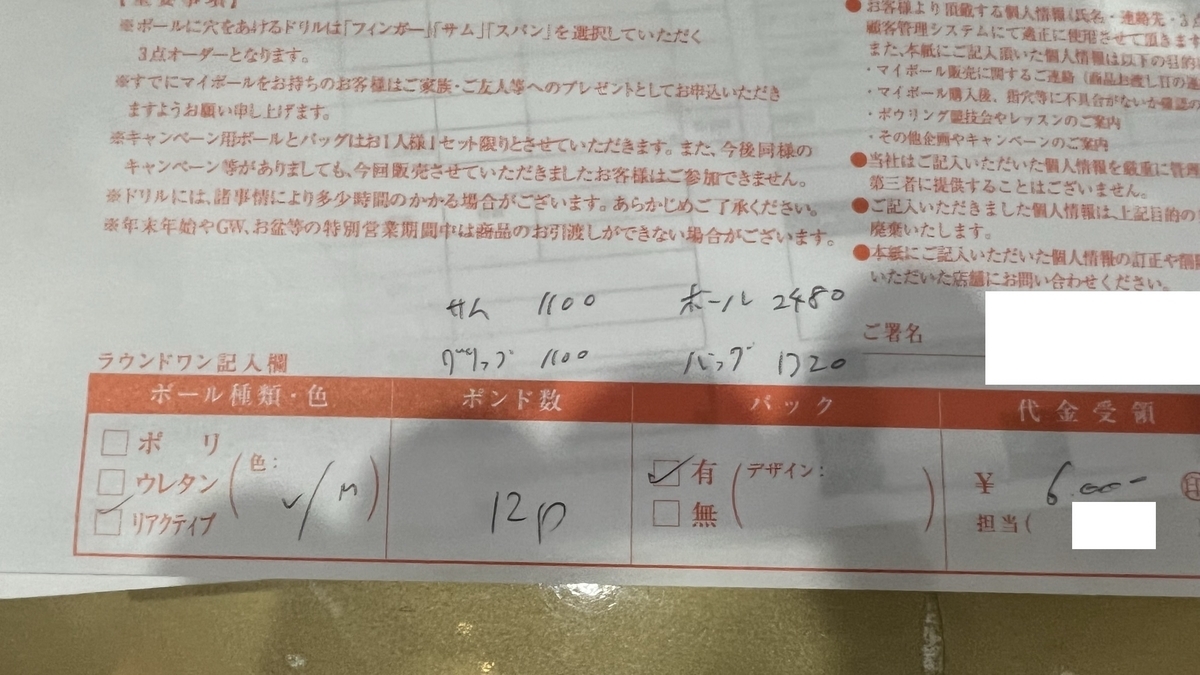 【重要事項】
※ボールに穴をあけるドリルは「フィンガー」「サム」「スパン」を選択していただく
3点オーダーとなります。
※すでにマイボールをお持ちのお客様はご家族・ご友人等へのプレゼントとしてお申込いただき
ますようお願い申し上げます。
※キャンペーン用ボールとバッグはお1人様1セット限りとさせていただきます。また、今後同様の
キャンペーン等がありましても、今回販売させていただきましたお客様はご参加できません。
※ドリルには、諸事情により多少時間のかかる場合がございます。あらかじめご了承ください。
※年末年始やGW、お盆等の特別営業期間中は商品のお引渡しができない場合がございます。
●お客様より頂戴する個人情報(氏名・連絡先・3点
顧客管理システムにて適正に使用させて頂きます
また、本紙にご記入頂いた個人情報は以下の目的
・マイボール販売に関するご連絡(商品お渡し日の連
・マイボール購入後、指穴等に不具合がないか確認の
・ボウリング競技会やレッスンのご案内
・その他企画やキャンペーンのご案内
●当社はご記入いただいた個人情報を厳重に管理
第三者に提供することはございません。
●ご記入いただきました個人情報は、上記目的の
廃棄いたします。
●本紙にご記入いただいた個人情報の訂正や削除
いただいた店舗にお問い合わせください。
サム 1100 ボール 2480
グリップ 1100 バッグ 1320
ご署名
ラウンドワン記入欄
ボール種類・色 ポンド数 バック 代金受領
ポリ
ウレタン
リアクティブ
(色: /M)
12p
有
無
(デザイン: )
¥ 6.000-
印
担当(